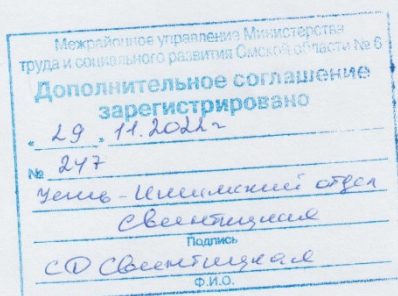 Межрайонное управление Министерства
труда и социального развития Омской области № 6
Дополнительное соглашение
зарегистрировано
" 29 " 11.2022 г
№ 247
Усть-Ишимский отдел
Свентицкая
Подпись
СФ Свентицкая
Ф.И.О.